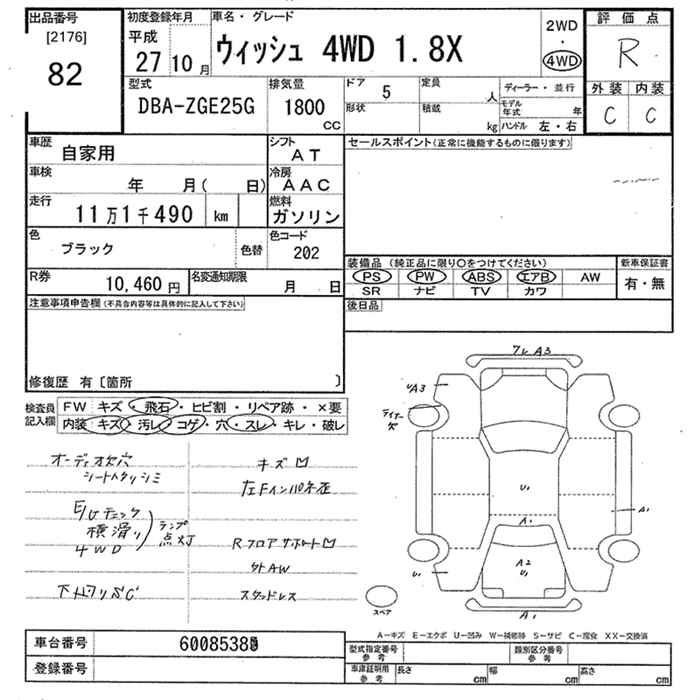 出品番号
[2176]
82
初度登録年月
平成
27年10月
車名・グレード
ウィッシュ 4WD 1.8X
2WD
・
4WD
評価点
R
外装 内装
C C
型式
DBA-ZGE25G
排気量
1800
CC
ドア 5
形状
定員 人
積載 kg
ディーラー・並行
モデル年式 年
ハンドル 左・右
車歴 自家用
シフト AT
車検 年 月( 日)
冷房 AAC
走行 11万1千490 km
燃料 ガソリン
色 ブラック 色替
色コード 202
R券 10,460円
名変通知期限 月 日
セールスポイント(正常に機能するものに限ります)
装備品(純正品に限り○をつけてください)
PS PW ABS エアB AW
SR ナビ TV カワ
新車保証書
有・無
後日品
注意事項申告欄(不具合内容等は具体的に記入して下さい)
修復歴 有〔箇所 〕
検査員記入欄
FW キズ・飛石・ヒビ割・リペア跡・×要
内装 キズ・汚レ・コゲ・穴・スレ・キレ・破レ
オーディオ欠穴
シートクッシミ
E/Gチェック
横滑り
4WD
ランプ点灯
下廻りSC
キズ凹
左Fインナー歪
Rフロアサポート凹
外AW
スタッドレス
フレ A3
U A3
ライナー欠
U1
A1
A1
A2
U1
U1
A1
スペア
A-キズ E-エクボ U-凹み W-補修跡 S-サビ C-腐食 XX-交換済
車台番号 6008538
登録番号
型式指定番号 参考
類別区分番号 参考
車庫証明用 参考
長さ cm
幅 cm
高さ cm